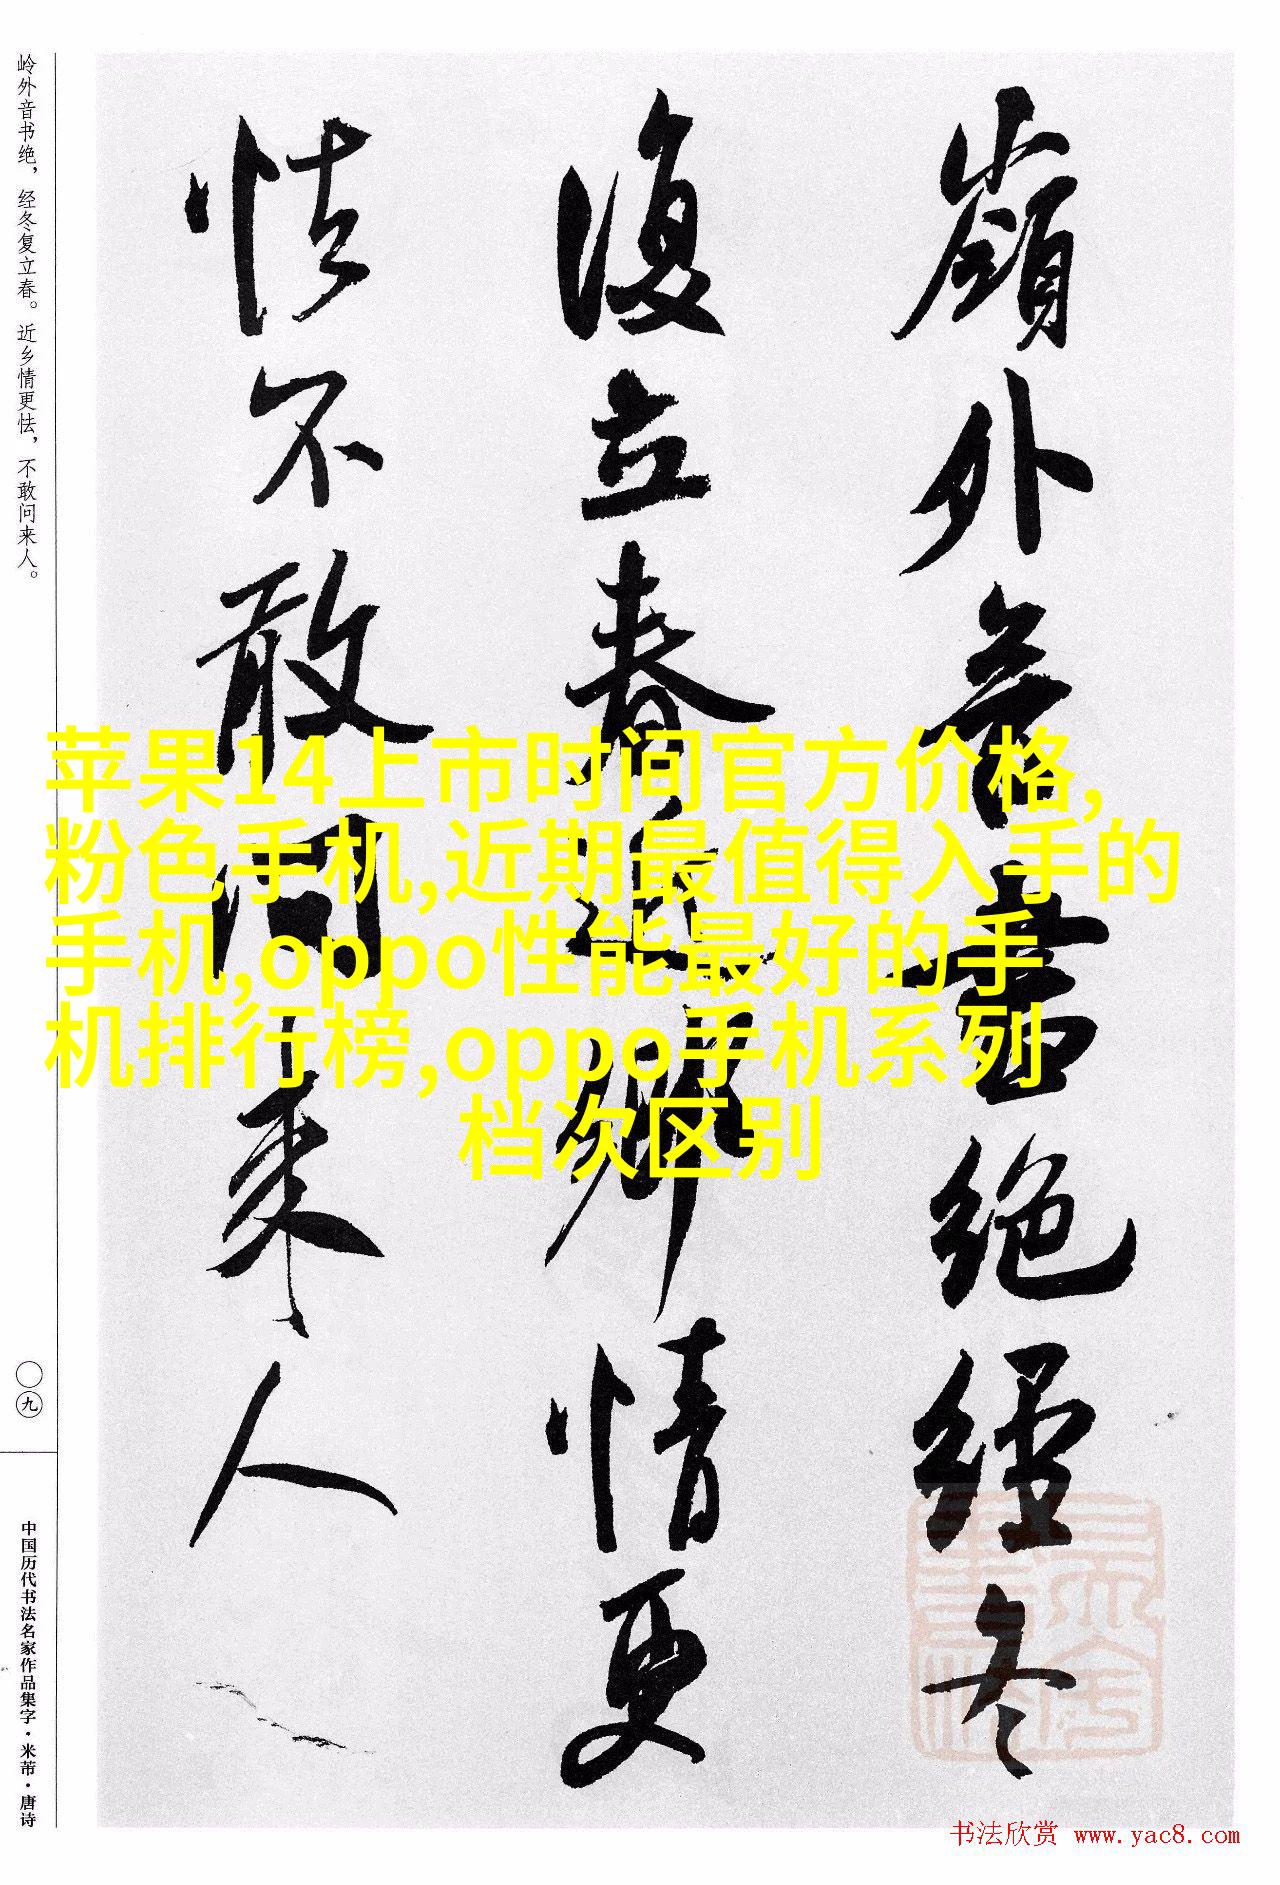 嶺外音書絶經冬
復立春近鄉情更
怯不敢问来人
岭外音书绝，经冬复立春。近乡情更怯，不敢问来人。
〇九
中国历代书法名家作品集字·米芾·唐诗
苹果14上市时间官方价格,
粉色手机,近期最值得入手的
手机,oppo性能最好的手
机排行榜,oppo手机系列
档次区别
书法欣赏 www.yac8.com